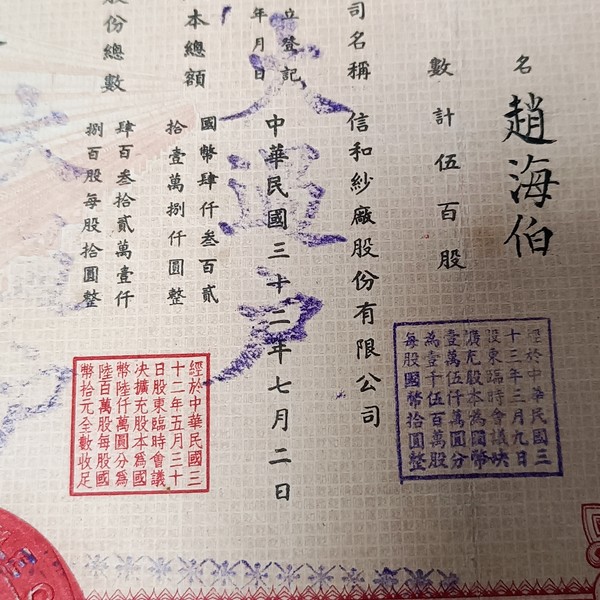 名
趙海伯
數計伍百股
司名稱
信和紗廠股份有限公司
立登記
年月日
中華民國三十二年七月二日
本總額
國幣肆仟叁百貳
拾壹萬捌仟圓整
股份總數
肆百叁拾貳萬壹仟
捌百股每股拾圓整
經於中華民國三
十三年三月九日
股東臨時會議決
擴充股本為國幣
壹萬伍仟萬圓分
為壹千伍百萬股
每股國幣拾圓整
經於中華民國三
十二年五月三十
日股東臨時會議
決擴充股本為國
幣陸仟萬圓分為
陸百萬股每股國
幣拾元全數收足